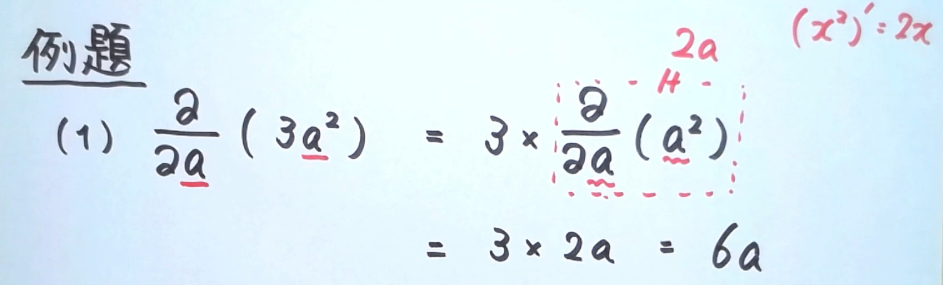 例題
(x²)' = 2x
2a
(1) ∂/∂a (3a²) = 3 × ∂/∂a (a²)
= 3 × 2a = 6a